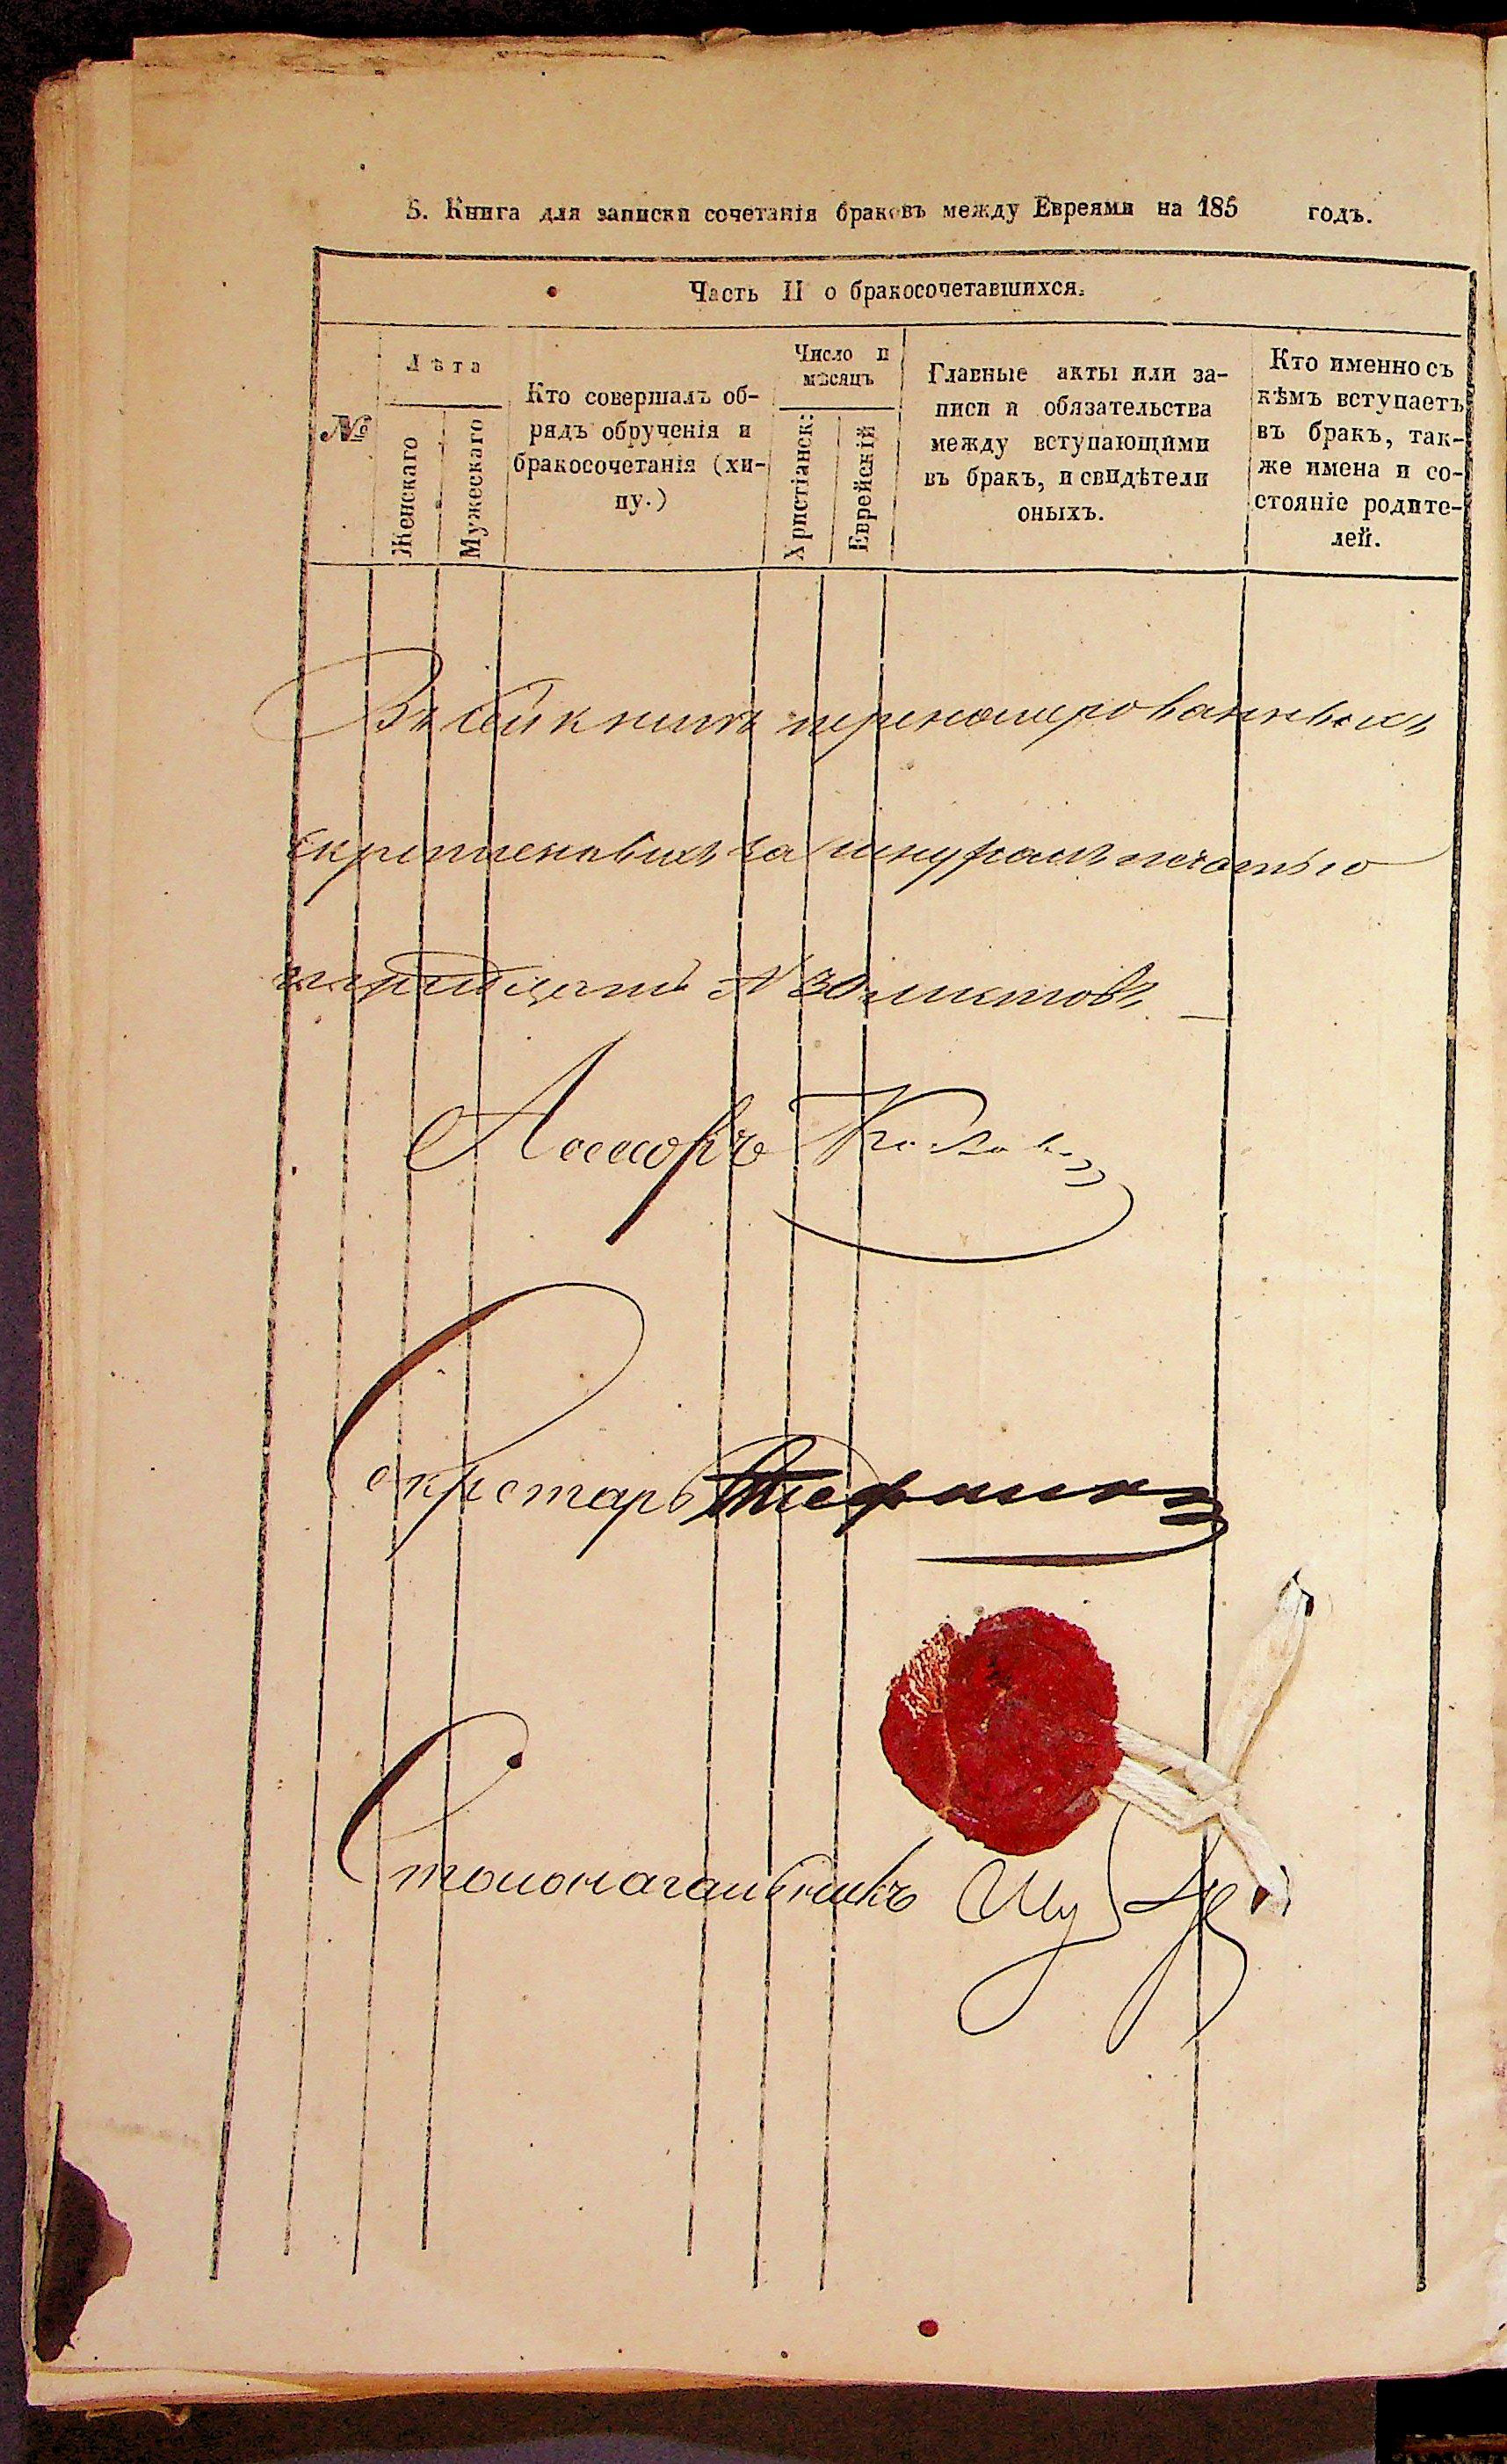 5. Книга для записки сочетанія браковъ между Евреями на 185 годъ.
Часть II о бракосочетавшихся.
№
Лѣта
Женскаго
Мужескаго
Кто совершалъ об-
рядъ обрученія и
бракосочетанія (хи-
пу.)
Число и
мѣсяцъ
Христіанск:
Еврейскій
Главные акты или за-
писи и обязательства
между вступающими
въ бракъ, и свидѣтели
оныхъ.
Кто именно съ
кѣмъ вступаетъ
въ бракъ, так-
же имена и со-
стояніе родите-
лей.
Въ сей книгѣ перенумерованныхъ
скрепленныхъ за шнуромъ и печатью
тридцать № 30 листовъ.
Ассесоръ
Секретарь
Столоначальникъ